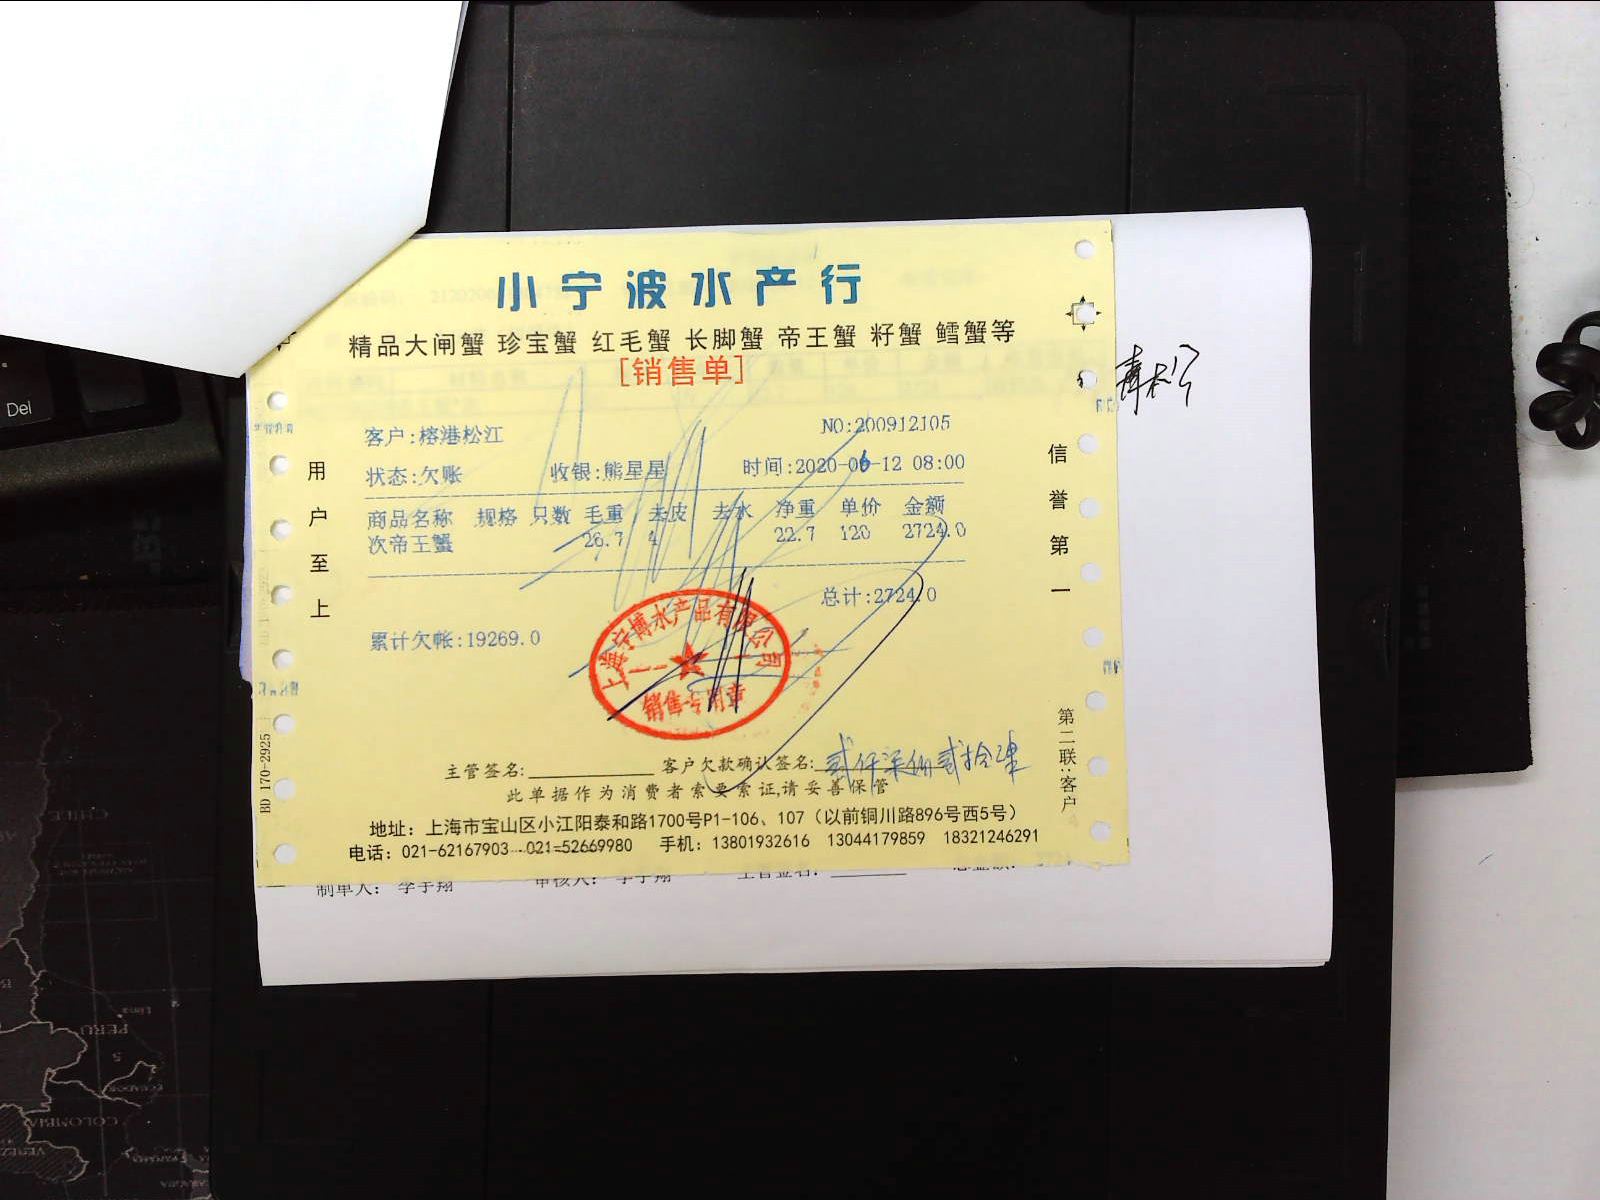 小宁波水产行
精品大闸蟹 珍宝蟹 红毛蟹 长脚蟹 帝王蟹 籽蟹 鳕蟹等
[销售单]
客户:榕港松江 NO:200912105
状态:欠账 收银:熊星星 时间:2020-06-12 08:00
商品名称 规格 只数 毛重 去皮 去水 净重 单价 金额
次帝王蟹 26.7 4 22.7 120 2724.0
总计:2724.0
累计欠帐:19269.0
上海宁博水产品有限公司
销售专用章
用户至上
信誉第一
第二联:客户
BD 170-2925
主管签名: 客户欠款确认签名: 贰仟柒佰贰拾肆
此单据作为消费者索要索证,请妥善保管
地址：上海市宝山区小江阳泰和路1700号P1-106、107（以前铜川路896号西5号）
电话：021-62167903 021-52669980 手机：13801932616 13044179859 18321246291
制单人： 李宇翔 审核人： 李宇翔 主管签名：
Del
CHILE
PERU
Lima
COLOMBIA